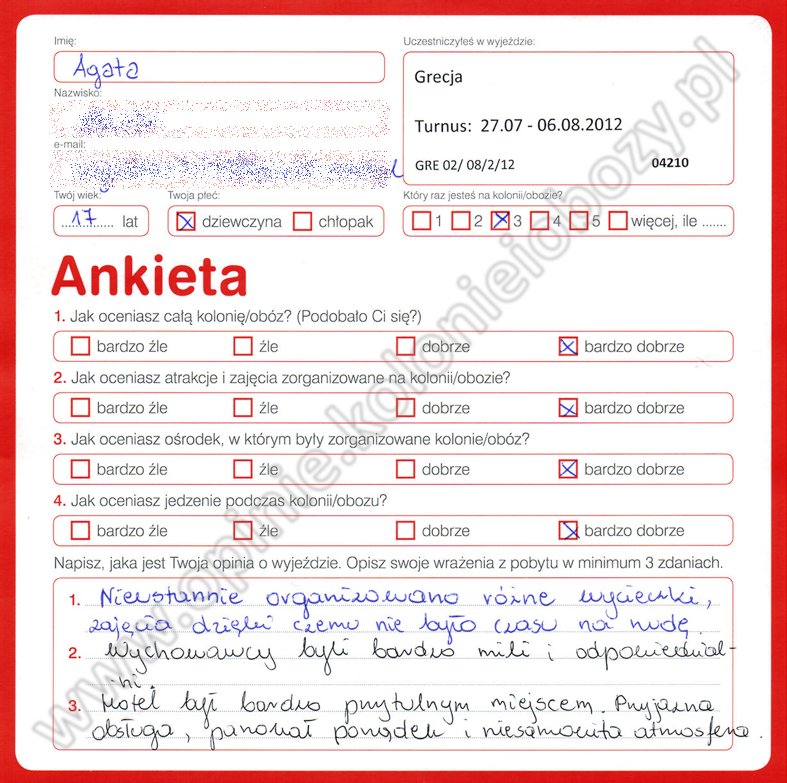 Imię:
Agata
Nazwisko:
e-mail:
Twój wiek:
17 lat
Twoja płeć:
dziewczyna chłopak
Uczestniczyłeś w wyjeździe:
Grecja
Turnus: 27.07 - 06.08.2012
GRE 02/ 08/2/12 04210
Który raz jesteś na kolonii/obozie?
1 2 3 4 5 więcej, ile .......
Ankieta
1. Jak oceniasz całą kolonię/obóz? (Podobało Ci się?)
bardzo źle źle dobrze bardzo dobrze
2. Jak oceniasz atrakcje i zajęcia zorganizowane na kolonii/obozie?
bardzo źle źle dobrze bardzo dobrze
3. Jak oceniasz ośrodek, w którym były zorganizowane kolonie/obóz?
bardzo źle źle dobrze bardzo dobrze
4. Jak oceniasz jedzenie podczas kolonii/obozu?
bardzo źle źle dobrze bardzo dobrze
Napisz, jaka jest Twoja opinia o wyjeździe. Opisz swoje wrażenia z pobytu w minimum 3 zdaniach.
1. Nieustannie organizowano różne wycieczki,
zajęcia dzięki czemu nie było czasu na nudę.
2. Wychowawcy byli bardzo mili i odpowiedzial-
ni.
3. Hotel był bardzo przytulnym miejscem. Przyjazna
obsługa, panował porządek i niesamowita atmosfera.
www.opinie.kolonieiobozy.pl